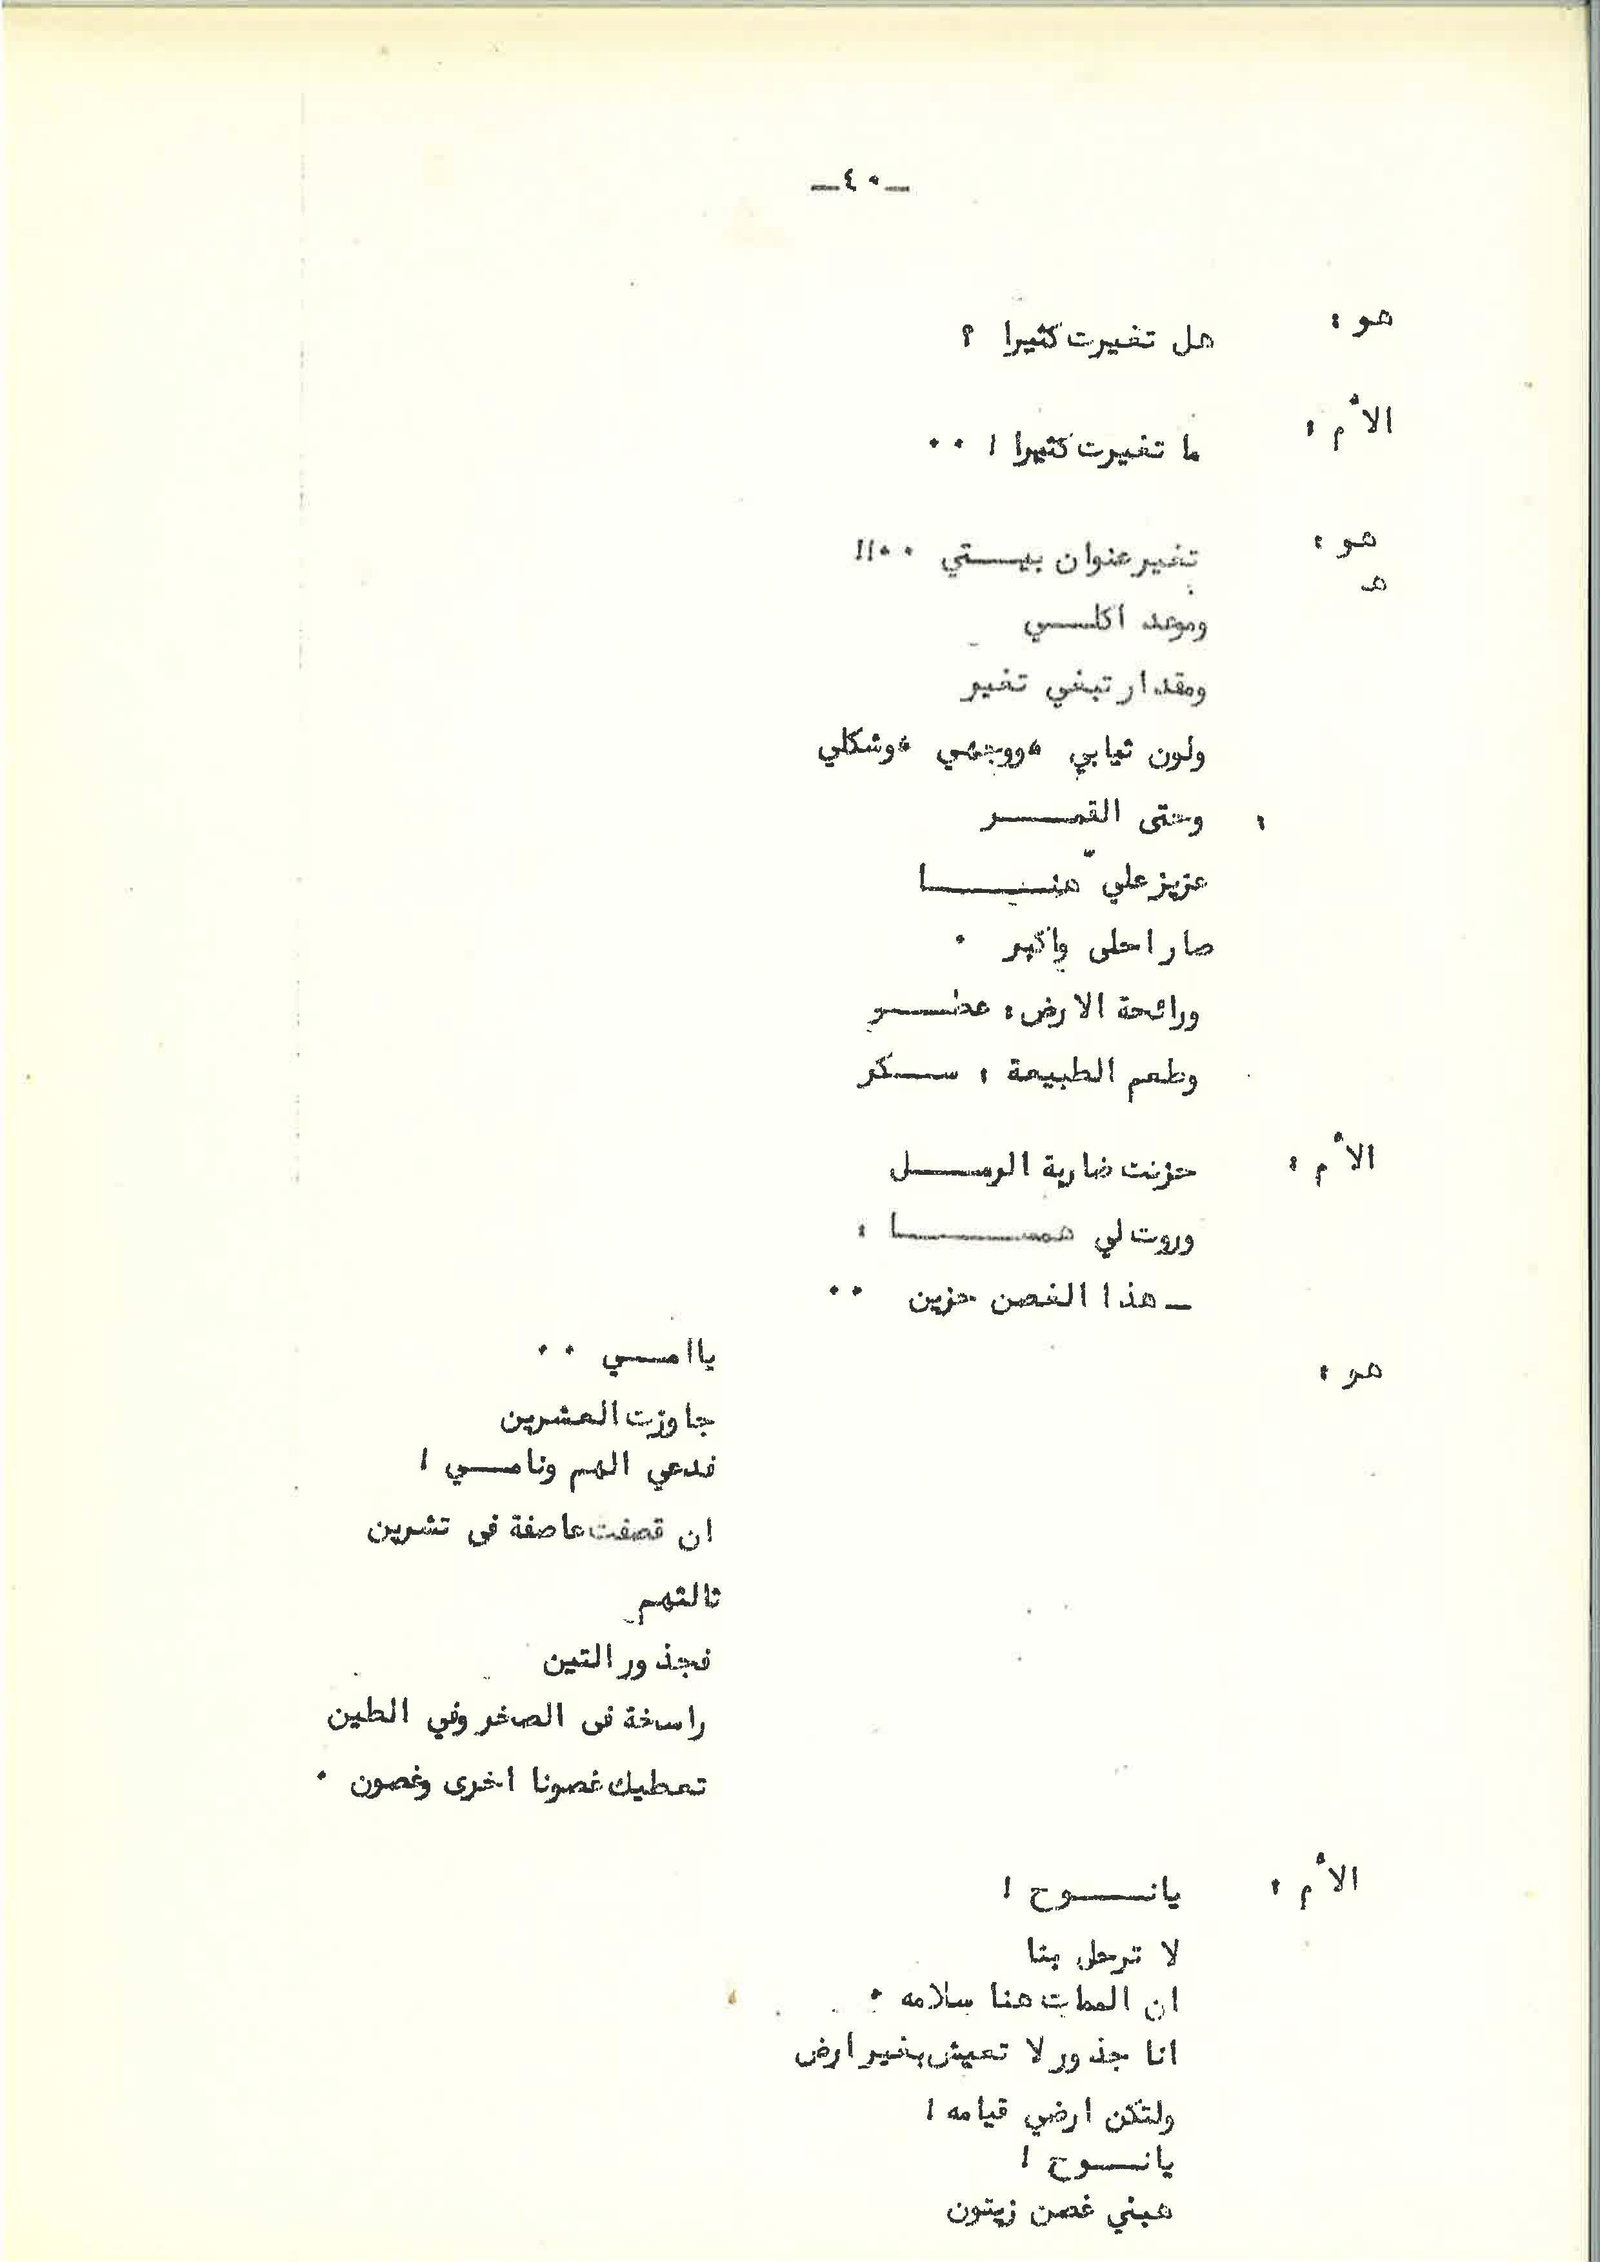 ـ٤٠ـ
هو : هل تغيرت كثيرا ؟
الأم : ما تغيرت كثيرا ! ٠٠
هو : تغير عنوان بيـــتي ٠٠!!
هـ
وموعد اكلـــي
ومقدار تبغي تغير
ولون ثيابي ،ووجهي ،وشكلي
وحتى القمـــــر :
عزيز عليّ هنــــــا
صار احلى واكبر ٠
ورائحة الارض : عطـــر
وطعم الطبيعة : ســـكر
الأم : حزنت ضاربة الرمـــــل
وروت لي همســــــــا :
ـ هذا الغصن حزين ٠٠
هو : ياامـــي ٠٠
جاوزت العشرين
فدعي الهم ونامـــي !
ان قصفت عاصفة فى تشرين
ثالثهم
فجذور التين
راسخة فى الصخر وفي الطين
تعطيك غصونا اخرى وغصون ٠
الأم : يانــــوح !
لا ترحل بنا
ان الممات هنا سلامه ٠
انا جذور لا تعيش بغير ارض
ولتكن ارضي قيامه !
يانــــوح !
هبني غصن زيتون